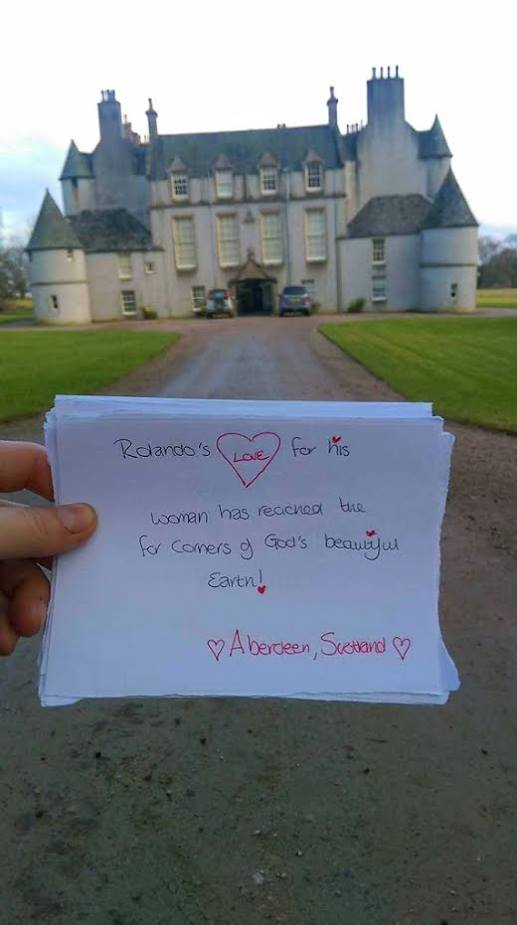 Rolando's LOVE for his
woman has reached the
for corners of God's beautiful
Earth!
Aberdeen, Scotland